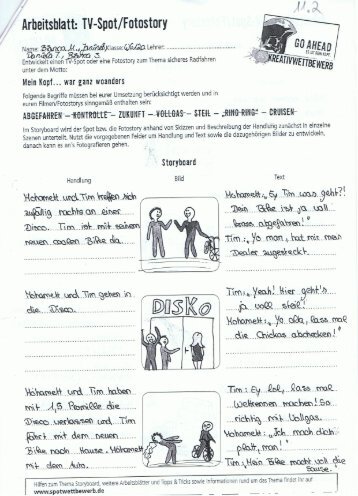 11.2
Arbeitsblatt: TV-Spot/Fotostory
GO AHEAD
KREATIVWETTBEWERB
Name: Klasse: Lehrer:
Entwickelt einen TV-Spot oder eine Fotostory zum Thema sicheres Radfahren
unter dem Motto:
Mein Kopf... war ganz woanders
Folgende Begriffe müssen bei eurer Umsetzung berücksichtigt werden und in
euren Filmen/Fotostorys sinngemäß enthalten sein:
ABGEFAHREN – KONTROLLE – ZUKUNFT – VOLLGAS – STEIL – „RING RING“ – CRUISEN
Im Storyboard wird der Spot bzw. die Fotostory anhand von Skizzen und Beschreibung der Handlung zunächst in einzelne
Szenen unterteilt. Nutzt die vorgegebenen Felder um Handlung und Text sowie die dazugehörigen Bilder zu entwickeln,
danach kann es an's Fotografieren gehen.
Storyboard
Handlung
Bild
Text
Mohamett und Tim treffen sich
zufällig nachts an einer
Disco. Tim ist mit seinem
neuen coolen Bike da.
Mohamett: „Ey Tim was geht?!
Dein Bike ist ja voll
krass abgefahren!"
Tim: „Yo man, hat mir mein
Dealer zugesteckt.
Mohamett und Tim gehen in
die Disco.
DISKO
Tim: „Yeah! Hier geht's
ja voll steil!
Mohamett: „Yo alla, lass mal
die Chickas abchecken!"
Mohamett und Tim haben
mit 1,5 Promille die
Disco verlassen und Tim
fährt mit dem neuen
Bike nach Hause. Mohamett
mit dem Auto.
Tim: Ey lol, lass mal
Wettrennen machen! So
richtig mit Vollgas.
Mohamett: „Ich mach dich
platt, man!"
Tim: Mein Bike macht voll die
Sause."
Hilfen zum Thema Storyboard, weitere Arbeitsblätter und Tipps & Tricks sowie Informationen rund um das Thema findet ihr auf
www.spotwettbewerb.de